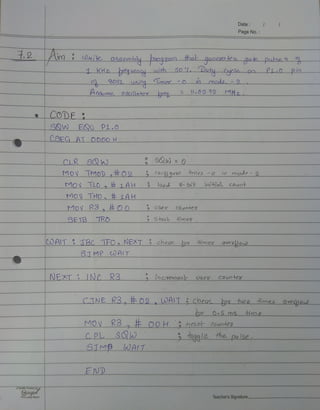 Date : / /
Page No. :
7.2 Aim : Write assembly program that generates gate pulses of
1 KHz frequency with 50% Duty cycle on P1.0 pin
of 8051 using Timer -0 in mode -2.
Assume oscillator freq = 11.0592 MHz.
* CODE :
SQW EQU P1.0
CSEG AT 0000H
CLR SQW ; SQW = 0
MOV TMOD, # 02 ; configure timer -0 in mode -2
MOV TL0, # 1AH ; load 8-bit initial count
MOV TH0, # 1AH
MOV R3, # 00 ; user counter
SETB TR0 ; Start timer
WAIT : JBC TF0, NEXT ; check for timer overflow
SJMP WAIT
NEXT : INC R3 ; Increment user counter
CJNE R3, # 02, WAIT ; check for two times overflow
for 0.5 ms time
MOV R3, # 00H ; reset counter
CPL SQW ; toggle the pulse.
SJMP WAIT
END
Teacher's Signature